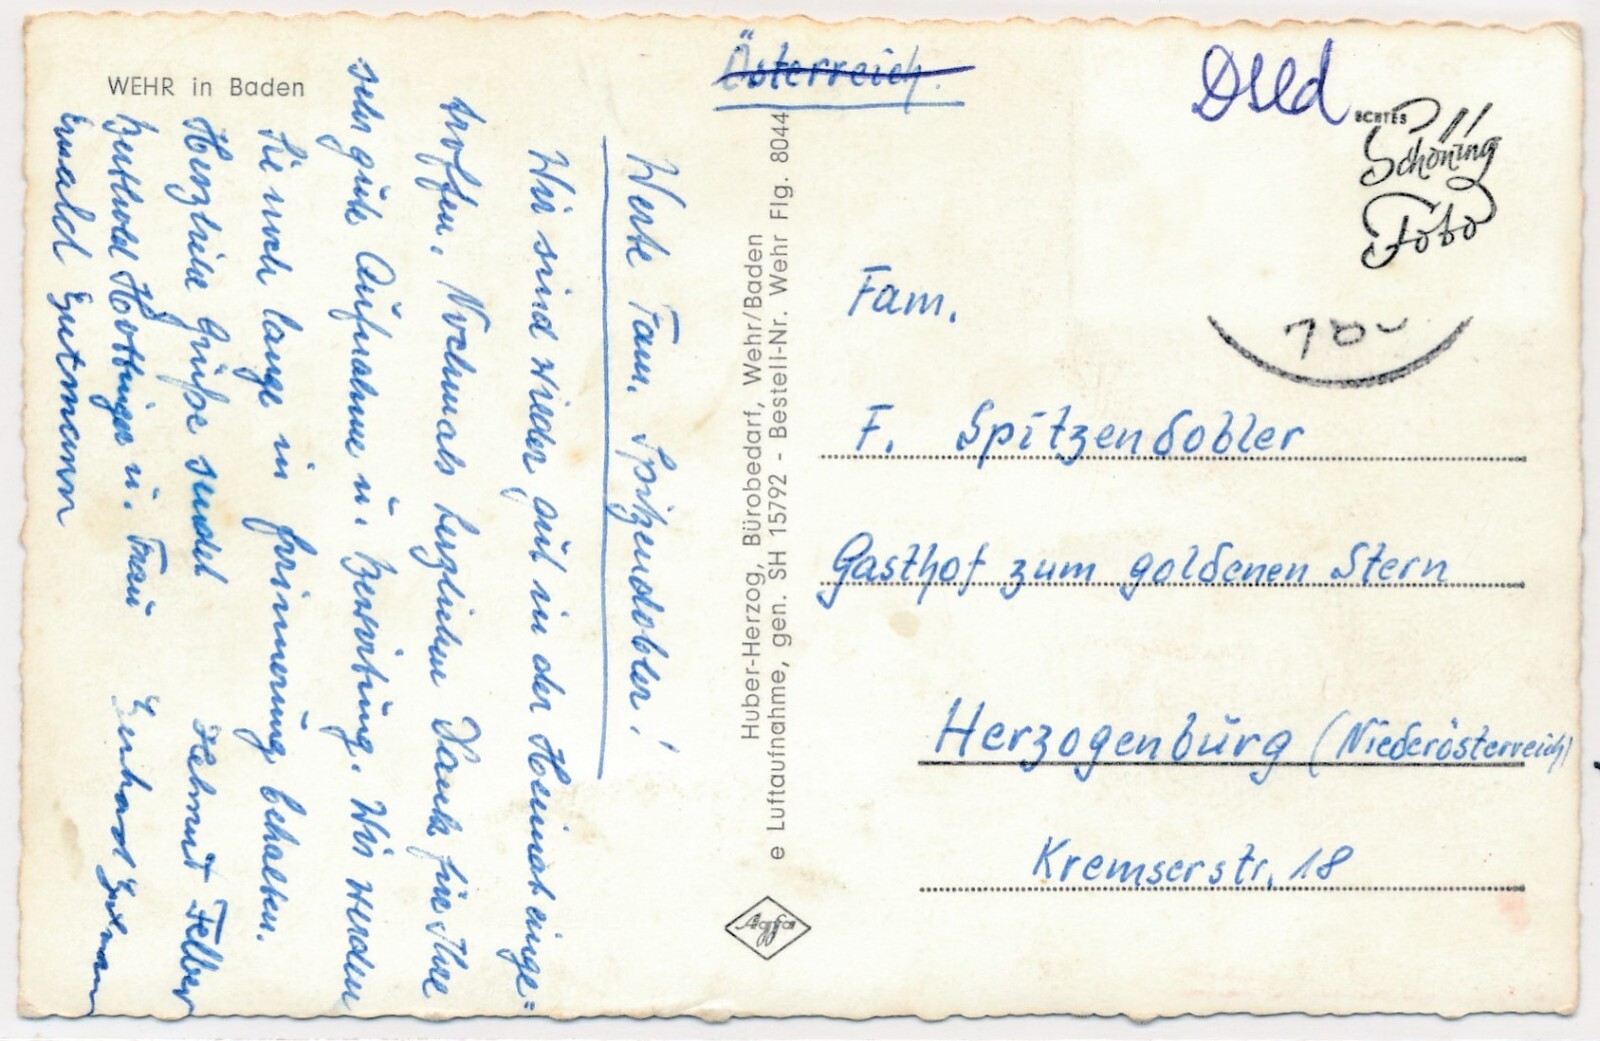 WEHR in Baden
Werte Fam. Spitzendobler!
Wir sind wieder gut in der Heimat einge=
troffen. Nochmals herzlichen Dank für Ihre
sehr gute Aufnahme u. Bewirtung. Wir werden
Sie noch lange in Erinnerung behalten.
Herzliche Grüße sendet
Helmut Felber
Berthold Hottinger u. Frau
Gerhard Gutmann
Ewald Gutmann
Huber-Herzog, Bürobedarf, Wehr/Baden
e Luftaufnahme, gen. SH 15792 - Bestell-Nr. Wehr Flg. 8044
Agfa
Österreich.
Dsld
ECHTES
Schöning
Foto
10-
Fam.
F. Spitzendobler
Gasthof zum goldenen Stern
Herzogenburg (Niederösterreich)
Kremserstr. 18